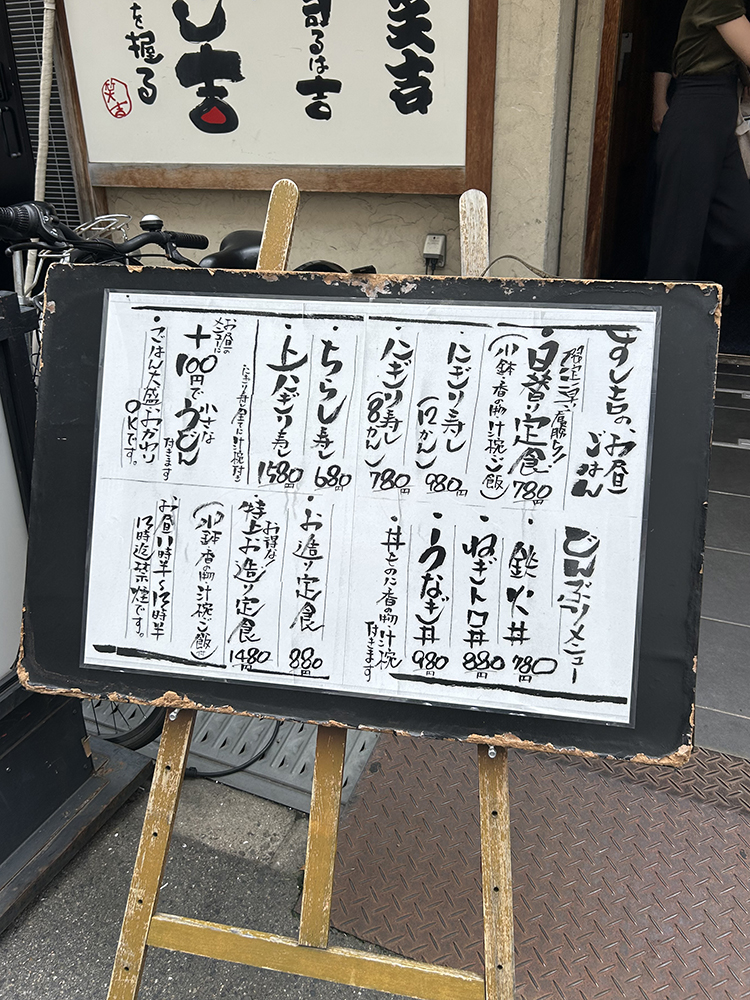 笑吉
司るは吉
し吉
を握る
笑吉
すし吉の、お昼ごはん
・日替り定食
780円
(小鉢・香の物・汁椀・ご飯)
・にぎり寿し
(12かん)
980円
・にぎり寿し
(8かん)
780円
・ちらし寿し
680円
・上にぎり寿し
1580円
にぎり寿し全てに汁椀付き
お昼のメニューに
+100円で小さなうどん
付きます
・ごはん大盛、おかわり
OKです。
どんぶりメニュー
・鉄火丼
780円
・ねぎトロ丼
880円
・うなぎ丼
980円
・丼ものに香の物・汁椀
付きます
・お造り定食
880円
お得な!
・特上お造り定食
1480円
(小鉢・香の物・汁椀・ご飯)
お昼11時半〜13時半
13時迄禁煙です。